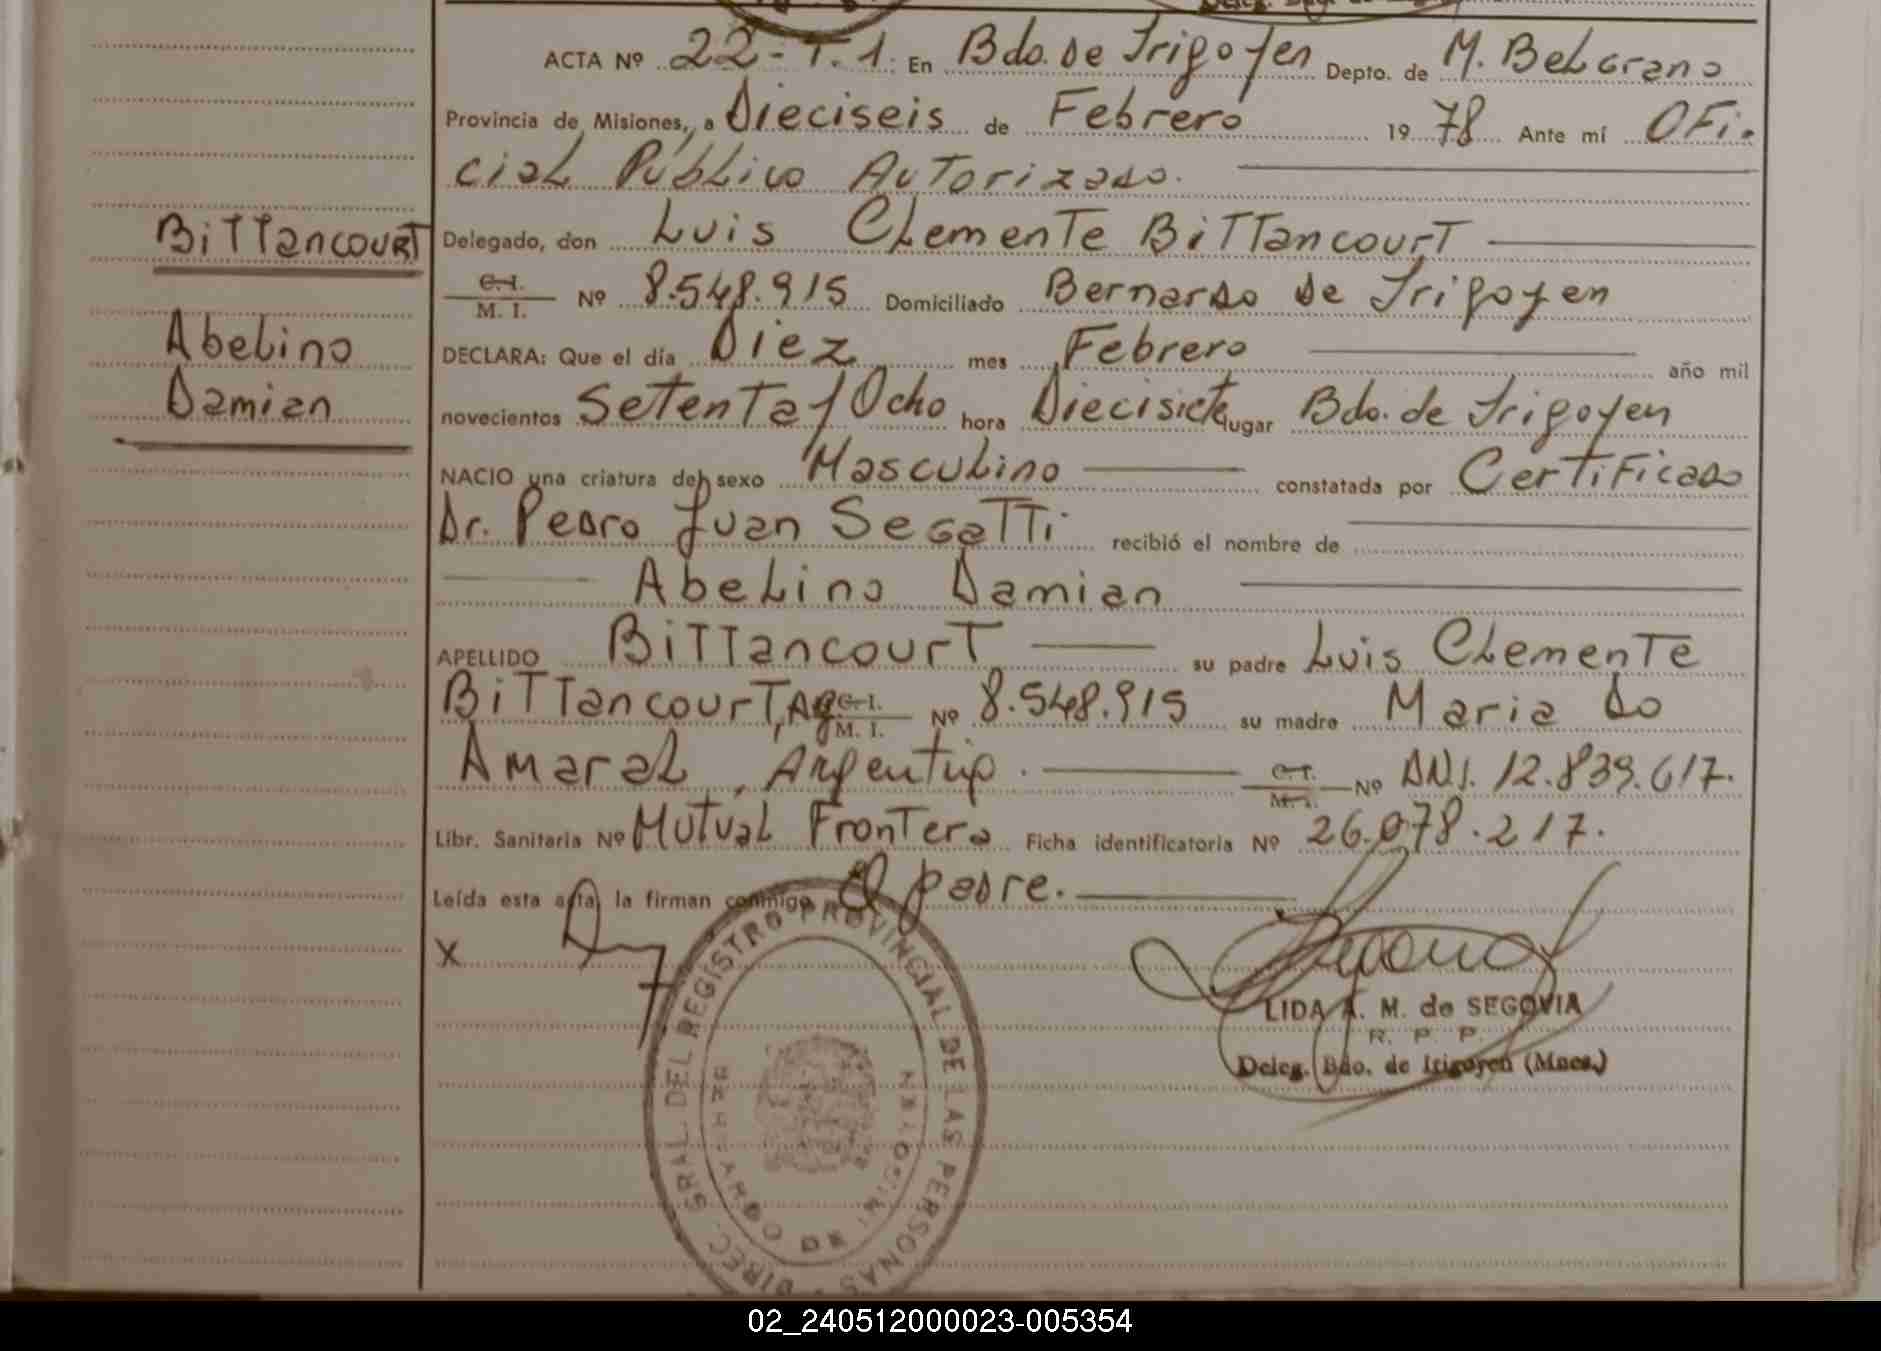 ACTA Nº 22-T.1. En Bdo. de Irigoyen Depto. de M. Belgrano
Provincia de Misiones, a Dieciseis de Febrero 19 78 Ante mí Ofi.
cial Público Autorizado.
Bittancourt
Delegado, don Luis Clemente Bittancourt
C. I.
M. I. Nº 8.548.915 Domiciliado Bernardo de Irigoyen
Abelino
Damian
DECLARA: Que el día Diez mes Febrero año mil
novecientos Setenta y Ocho hora Diecisiete lugar Bdo. de Irigoyen
NACIO una criatura del sexo Masculino constatada por Certificado
Dr. Pedro Juan Segatti recibió el nombre de
Abelino Damian
APELLIDO Bittancourt su padre Luis Clemente
Bittancourt, Ag. C. I. M. I. Nº 8.548.915 su madre Maria Do
Amaral, Argentina. C. I. M. I. Nº DNI. 12.839.617.
Libr. Sanitaria Nº Mutual Frontera Ficha identificatoria Nº 26.078.217.
Leída esta acta, la firman conmigo El padre.
X
LIDA A. M. de SEGOVIA
R. P. P.
Deleg. Bdo. de Irigoyen (Mnes.)
DIREC. GRAL. DEL REGISTRO PROVINCIAL DE LAS PERSONAS
BERNARDO DE IRIGOYEN
02_240512000023-005354